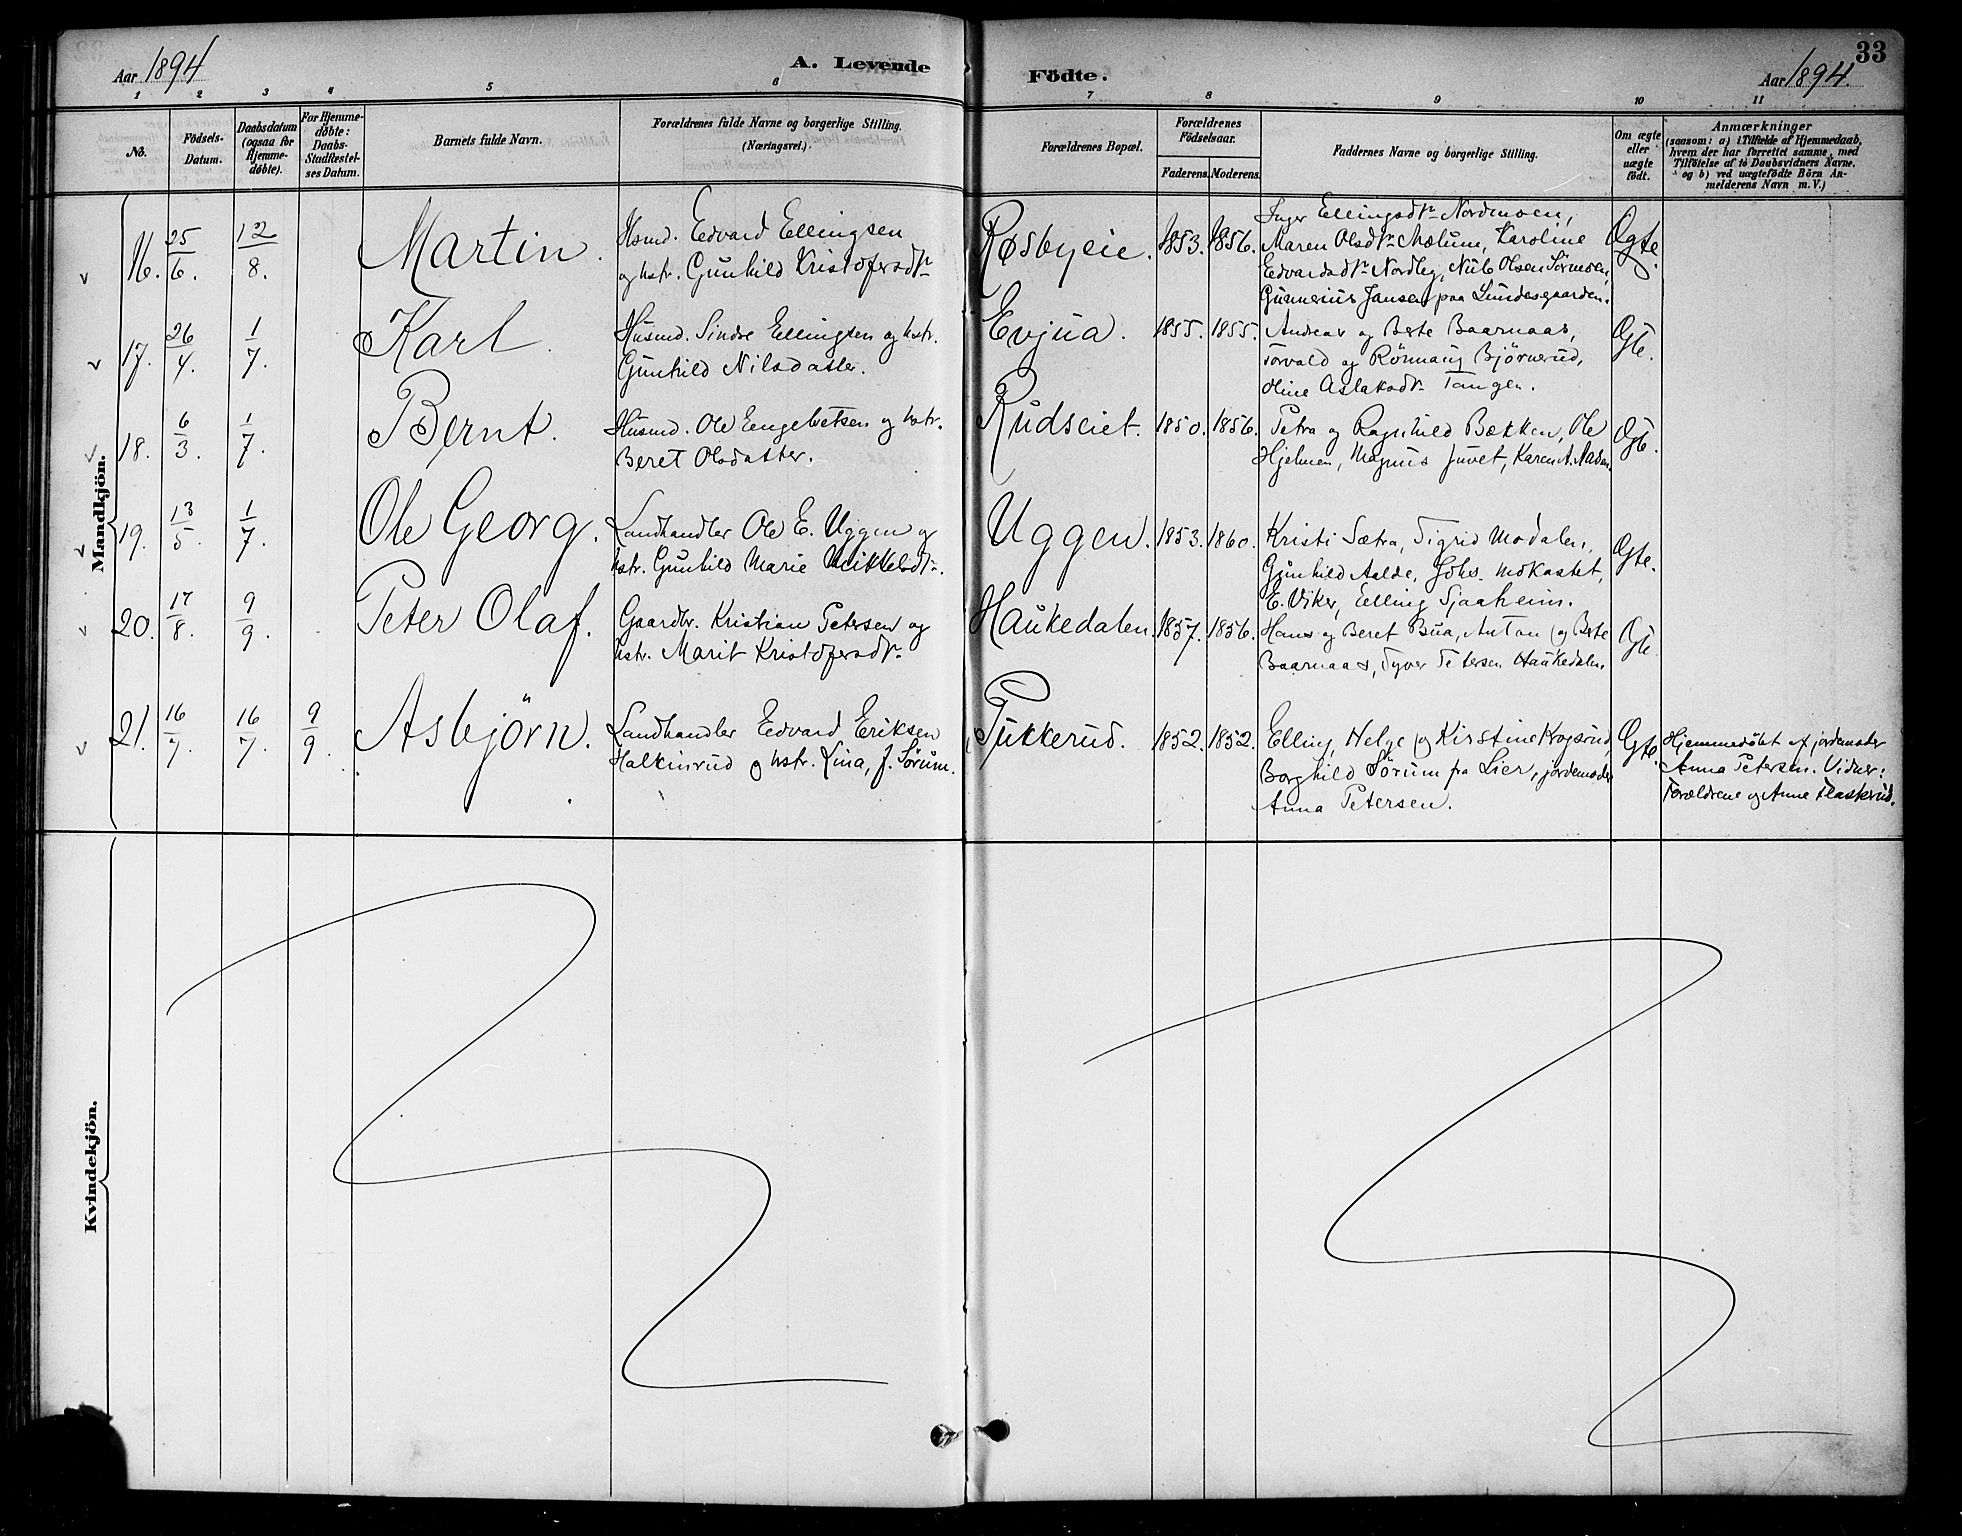 33
Aar 1894
A. Levende
Födte.
Aar 1894.
1 2 3 4 5 6 7 8 9 10 11
No.
Födsels-Datum.
Daabsdatum (ogsaa for Hjemme-døbte).
For Hjemme-døbte: Daabs-Stadfæstel-ses Datum.
Barnets fulde Navn.
Forældrenes fulde Navne og borgerlige Stilling.
(Næringsvei.)
Forældrenes Bopæl.
Forældrenes Födselsaar.
Faderens. Moderens.
Faddernes Navne og borgerlige Stilling.
Om ægte eller uægte födt.
Anmærkninger
(saasom: a) i Tilfælde af Hjemmedaab,
hvem der har forrettet samme, med
Tilföielse af to Daabsvidners Navne,
og b) ved uægtefödte Börn An-
melderens Navn m. V.)
Mandkjön.
16. 25/6. 12/8. Martin.
Hsmd. Edvard Ellingsen
og hstr. Gunhild Kristofersdtr.
Røsbyeie. 1853. 1856.
Inger Ellingsdtr. Nordmoen,
Maren Olsdtr. Mælum, Karoline
Edvardsdtr. Nordby, Nils Olsen Sørmoen,
Gunnerius Jansen paa Lundesgaarden.
Ægte.
17. 26/4. 1/7. Karl.
Husmd. Sindre Ellingsen og hstr.
Gunhild Nilsdatter.
Evjua. 1855. 1855.
Andreas og Berte Baarnaas,
Torvald og Rönnaug Björnerud,
Oline Aslaksdtr. Tangen.
Ægte.
18. 6/3. 1/7. Bernt.
Husmd. Ole Engebretsen og hstr.
Beret Olsdatter.
Rudseiet. 1850. 1856.
Petra og Ragnhild Bækken, Ole
Hjelmen, Magnus Juvet, Karen A.
Ægte.
19. 13/5. 1/7. Ole Georg.
Landhandler Ole E. Uggen og
hstr. Gunhild Marie Mikkelsdtr.
Uggen. 1853. 1860.
Kristi Sætra, Sigrid Modalen,
Gunhild Aalde, Johs. Mokastet,
E. Viker, Elling Sjaaheim.
Ægte.
20. 17/8. 9/9. Peter Olaf.
Gaardbr. Kristian Petersen og
hstr. Marit Kristofersdtr.
Haukedalen. 1857. 1856.
Hans og Beret Bua, Anton og Berte
Baarnaas, Syver Petersen Haukedalen.
Ægte.
21. 16/7. 16/7. 9/9. Asbjörn.
Landhandler Edvard Eriksen
Halkinrud og hstr. Lina, f. Sörum.
Tukkerud. 1852. 1852.
Elling, Helge og Kirstine Krogsrud
Borghild Sörum fra Lier, jordemoder
Anna Petersen.
Ægte.
Hjemmedöbt af jordemoder
Anna Petersen. Vidner:
Forældrene og Anne Flaskerud.
Kvindekjön.